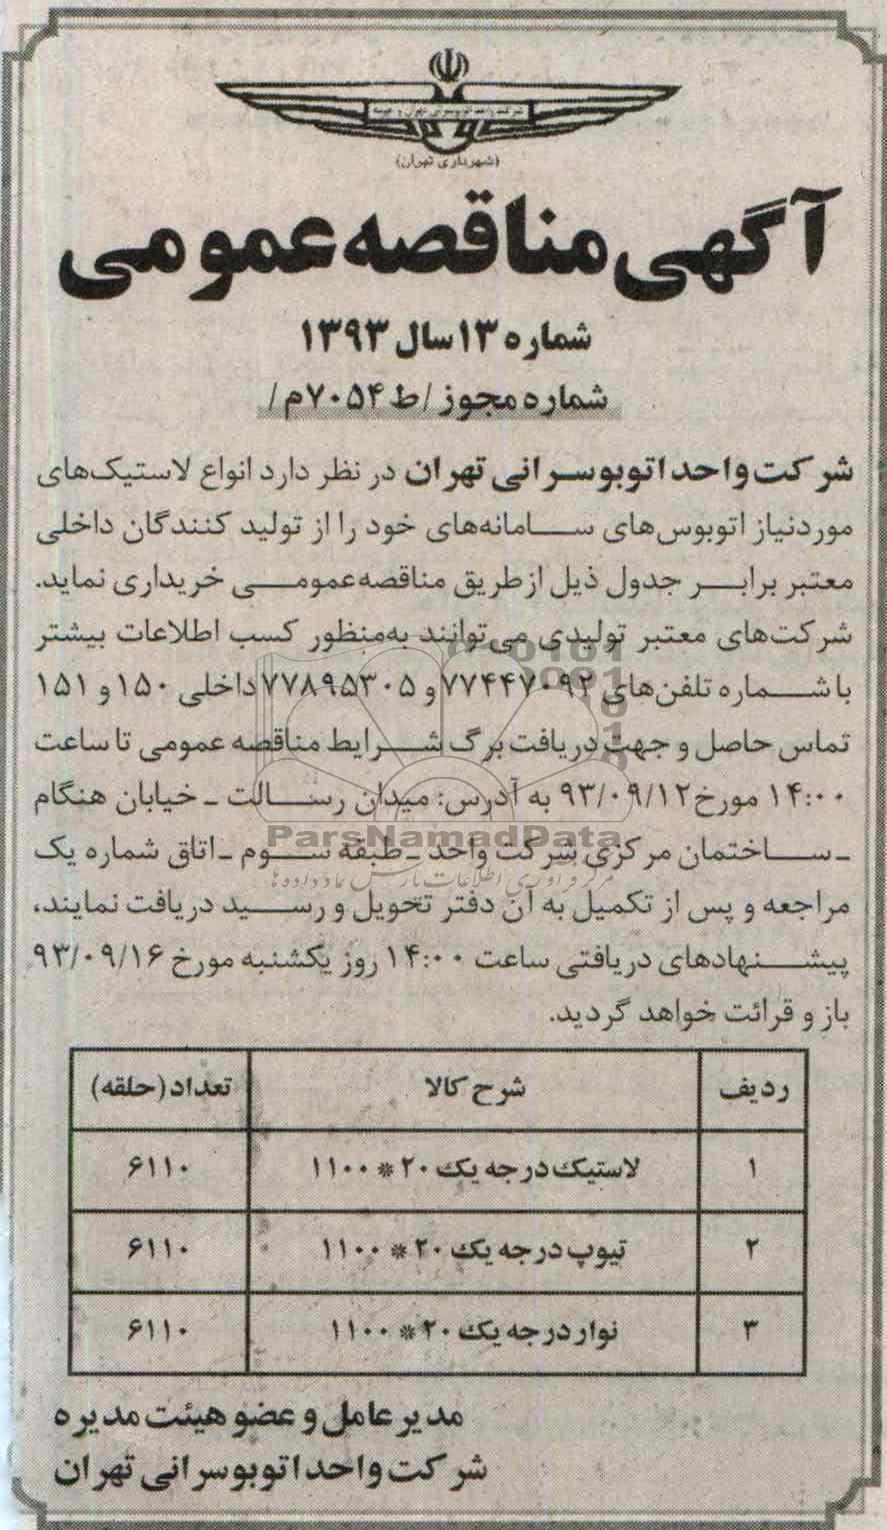 شرکت واحد اتوبوسرانی تهران و حومه
(شهرداری تهران)
آگهی مناقصه عمومی
شماره ۱۳ سال ۱۳۹۳
شماره مجوز /ط ۷۰۵۴م/
شرکت واحد اتوبوسرانی تهران در نظر دارد انواع لاستیک‌های
موردنیاز اتوبوس‌های سامانه‌های خود را از تولید کنندگان داخلی
معتبر برابر جدول ذیل از طریق مناقصه عمومی خریداری نماید.
شرکت‌های معتبر تولیدی می‌توانند به‌منظور کسب اطلاعات بیشتر
با شماره تلفن‌های ۷۷۴۴۷۰۹۲ و ۷۷۸۹۵۳۰۵ داخلی ۱۵۰ و ۱۵۱
تماس حاصل و جهت دریافت برگ شرایط مناقصه عمومی تا ساعت
۱۴:۰۰ مورخ ۹۳/۰۹/۱۲ به آدرس: میدان رسالت ـ خیابان هنگام
ـ ساختمان مرکزی شرکت واحد ـ طبقه سوم ـ اتاق شماره یک
مراجعه و پس از تکمیل به آن دفتر تحویل و رسید دریافت نمایند،
پیشنهادهای دریافتی ساعت ۱۴:۰۰ روز یکشنبه مورخ ۹۳/۰۹/۱۶
باز و قرائت خواهد گردید.
ردیف شرح کالا تعداد (حلقه)
۱ لاستیک درجه یک ۲۰ * ۱۱۰۰ ۶۱۱۰
۲ تیوپ درجه یک ۲۰ * ۱۱۰۰ ۶۱۱۰
۳ نوار درجه یک ۲۰ * ۱۱۰۰ ۶۱۱۰
مدیر عامل و عضو هیئت مدیره
شرکت واحد اتوبوسرانی تهران
ParsNamadData
مرکز فرآوری اطلاعات پارس نماد داده ها